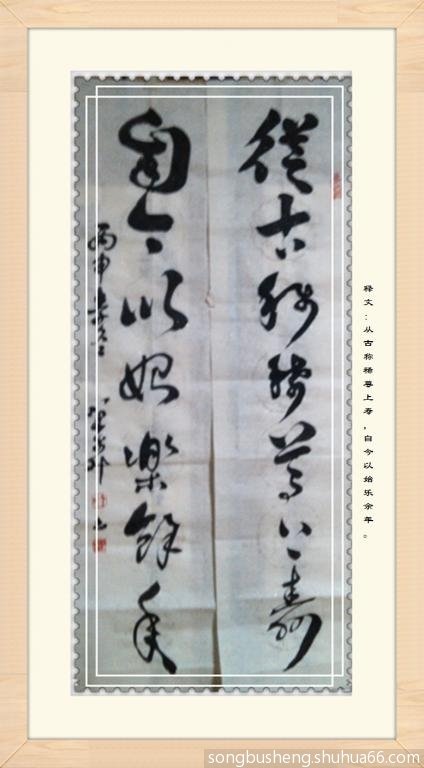 從古稱稀尊上壽
自今以始樂餘年
丙申
释文:从古称稀尊上寿,自今以始乐余年。
songbusheng.shuhua66.com